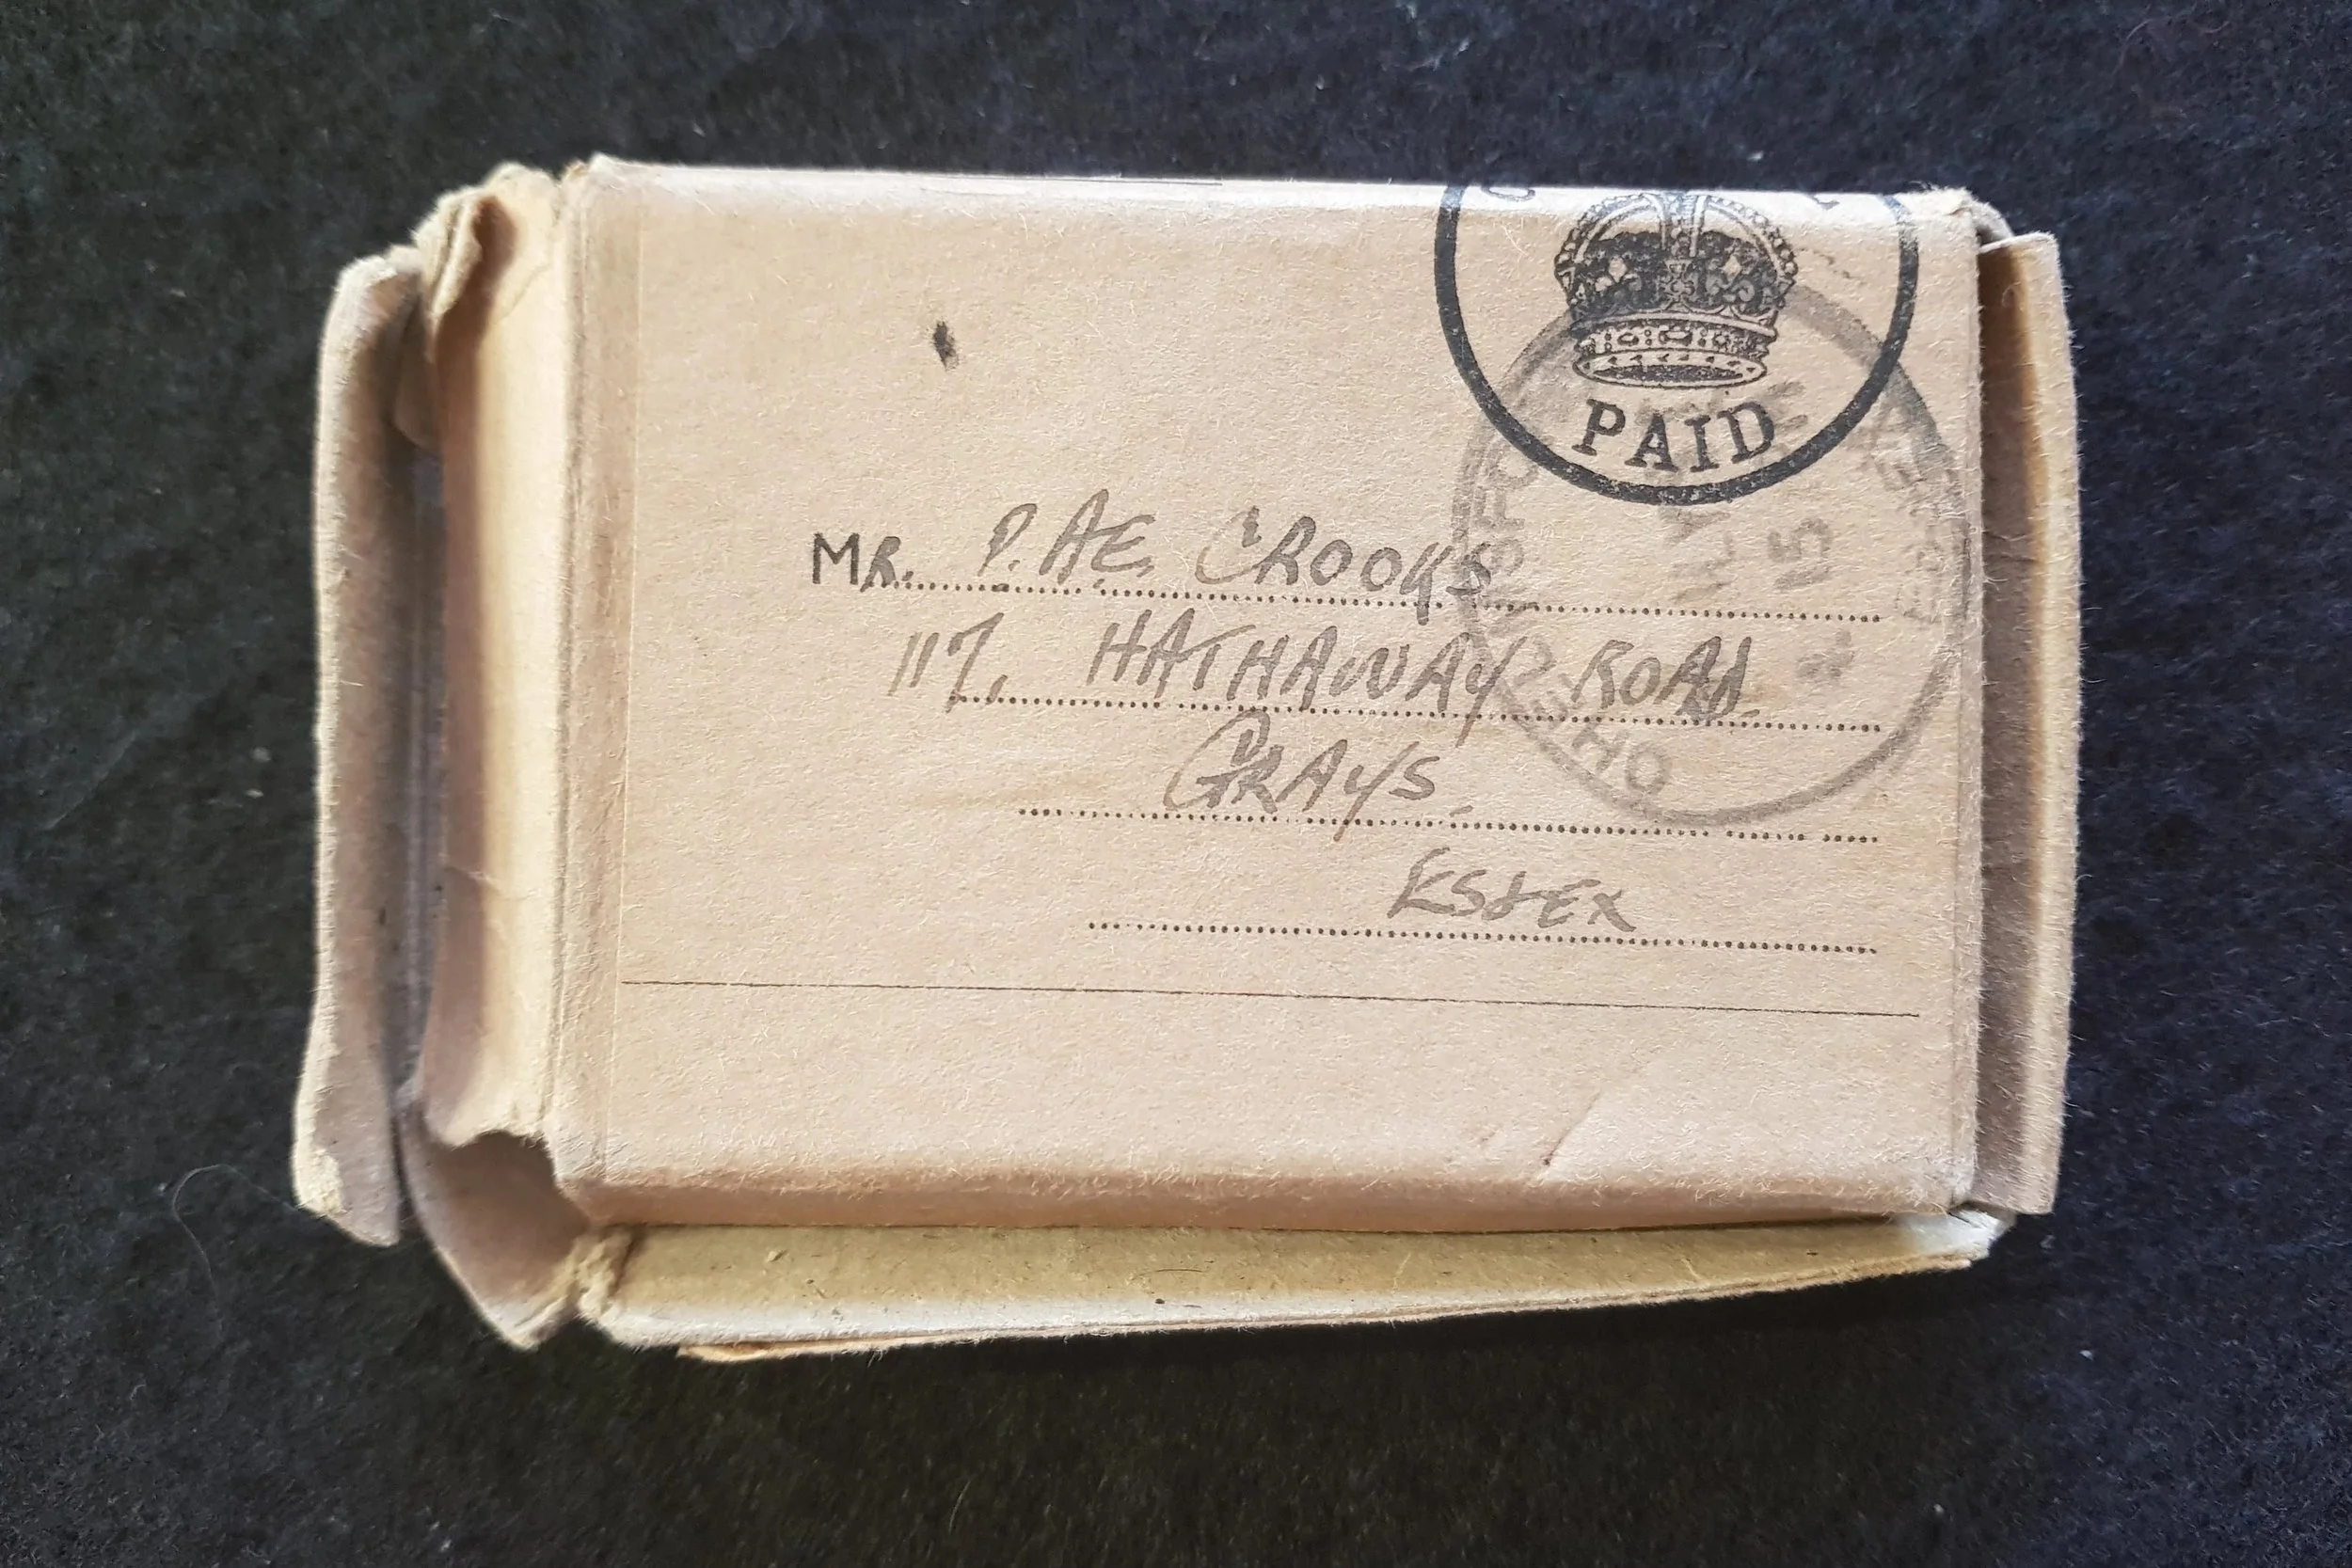 PAID
MR. P. A.E. CROOKS
117, HATHAWAY ROAD
GRAYS.
ESSEX
15